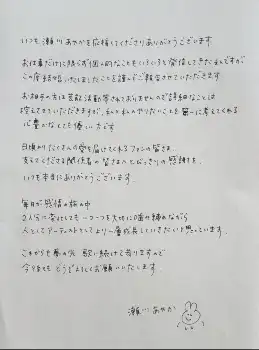 いつも瀬川あやかを応援してくださりありがとうございます
お仕事だけに限らず個人的なこともいろいろと発信してきた私ですが
この度結婚いたしましたことを謹んでご報告させていただきます
お相手の方は芸能活動等されておりませんので詳細なことは
控えさせていただきますが、私と私のやりたいことを第一に考えてくれる
心豊かなとても優しい方です
日頃からたくさんの愛を届けてくれるファンの皆さま、
支えてくださる関係者の皆さまへとびっきりの感謝を。
いつも本当にありがとうございます。
毎日が感情の旅の中
2人分に変化しても一つ一つを大切に噛み締めながら
人としてアーティストとしてより一層成長していきたいと思っています。
これからも夢の先 歌い続けて参りますので
今後ともどうぞよろしくお願いいたします。
瀬川あやか